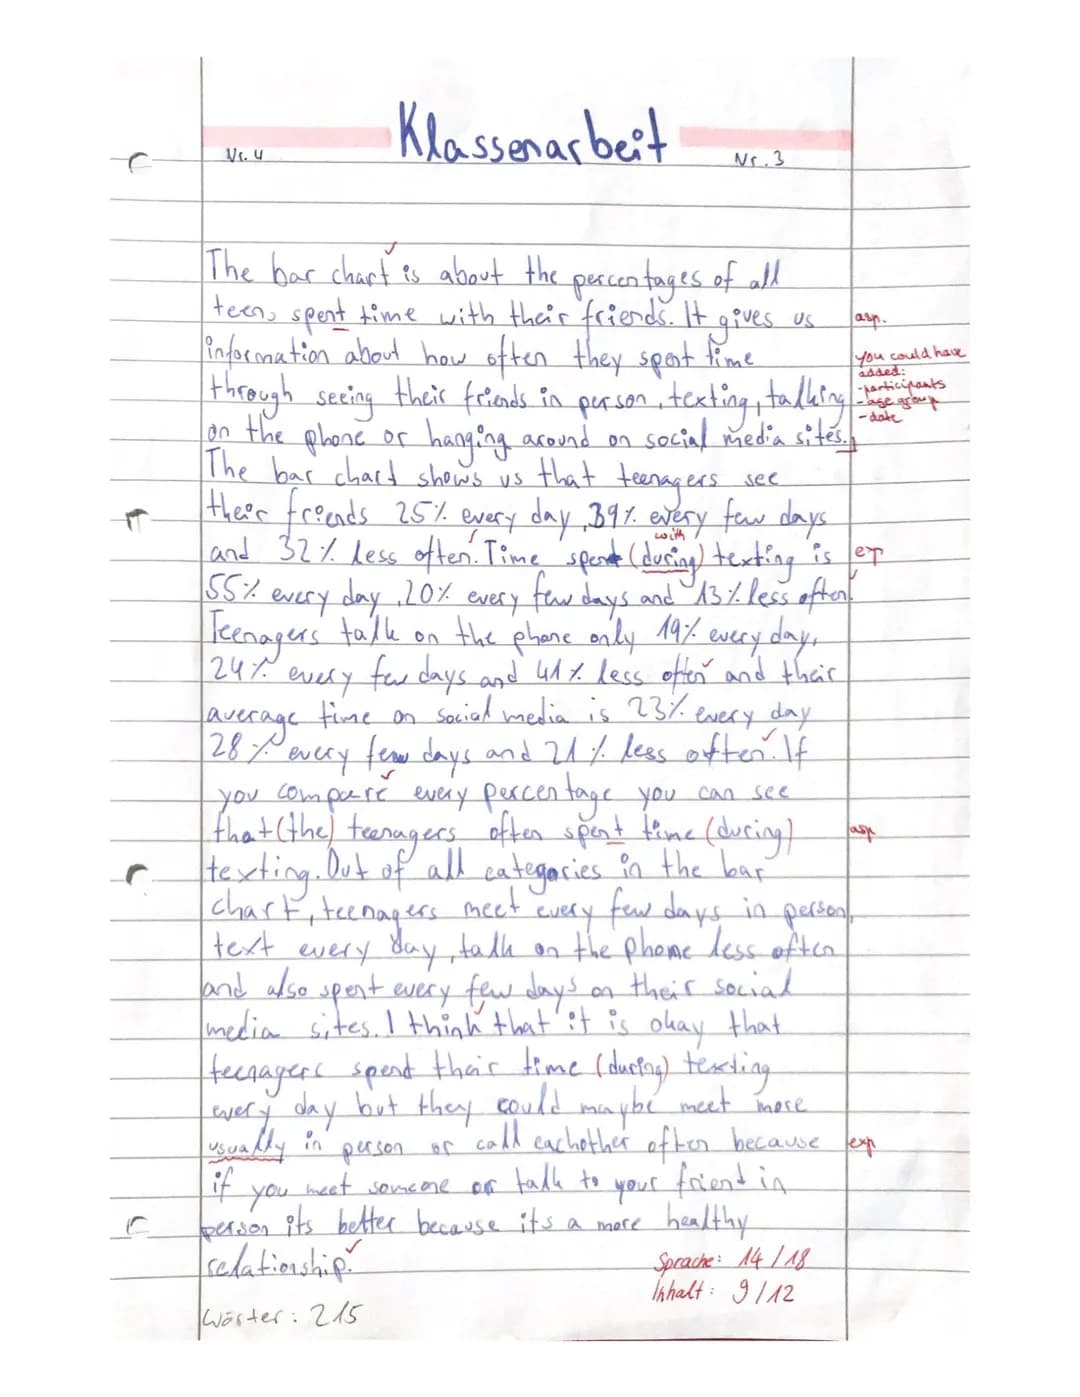 Klassenarbeit
Nr. 4
Nr. 3
The bar chart is about the percentages of all
teens spent time with their friends. It gives us
asp.
information about how often they spent time
you could have
added:
through seeing their friends in person, texting, talking
-participants
-age group
-date
on the phone or hanging around on social media sites.
The bar chart shows us that teenagers see
their friends 25% every day, 39% every few days
with
and 32% less often. Time spent (during) texting is
ex
55% every day, 20% every few days and 13% less often.
Teenagers talk on the phone only 19% every day,
24% every few days and 41% less often and their
average time on social media is 23% every day
28% every few days and 21% less often. If
you compare every percentage you can see
that (the) teenagers often spent time (during)
asp
texting. Out of all categories in the bar
chart, teenagers meet every few days in person,
text every day, talk on the phone less often
and also spent every few days on their social
media sites. I think that it is okay that
teenagers spend their time (during) texting
every day but they could maybe meet more
usually in person or call eachother often because
exp
if you meet someone or talk to your friend in
person its better because its a more healthy
relationship.
Sprache: 14/18
Inhalt: 9/12
Wörter: 215